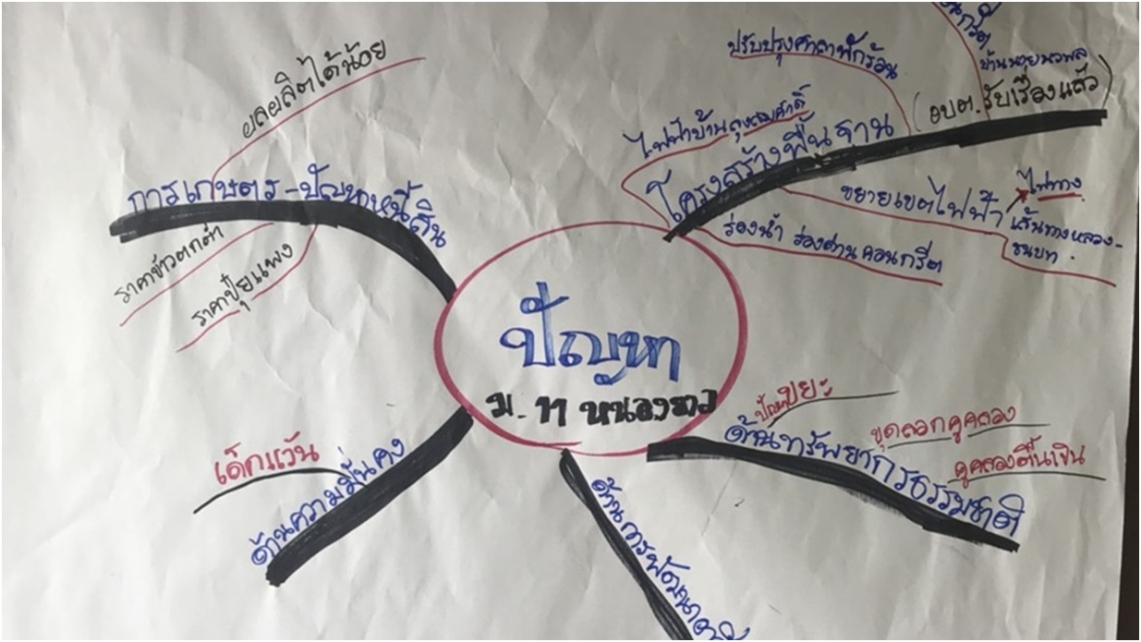 ปัญหา
ม. 11 หนองขาว
การเกษตร-ปัญหาหนี้สิน
ผลผลิตได้น้อย
ราคาข้าวตกต่ำ
ราคาปุ๋ยแพง
โครงสร้างพื้นฐาน
ปรับปรุงศาลาพักร้อน
ไฟฟ้าบ้าน
(อบต. รับเรื่องแล้ว)
ขยายเขตไฟฟ้า
ไฟทาง
เส้นทางหลวง-
ชนบท.
ร่องน้ำ ร่องด่านคอนกรีต
ด้านทรัพยากรธรรมชาติ
ปัญหาขยะ
ขุดลอกคูคลอง
คูคลองตื้นเขิน
ด้านการพัฒนา
ด้านความมั่นคง
เด็กแว้น